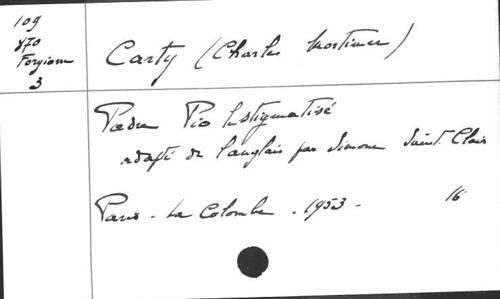 109
870
Forgione
3
Carty (Charles Mortimer)
Padre Pio le stigmatisé
adapté de l'anglais par Simone Saint-Clair
Paris - La Colombe - 1953 - 16